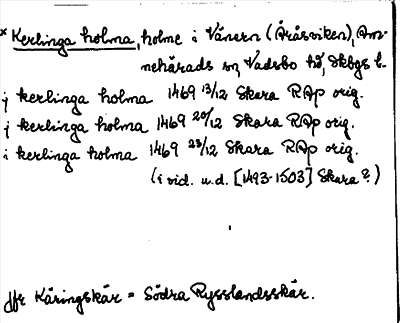 * Kerlinga holma, holme i Vänern (Åråsviken), Am-
nehärads sn, Vadsbo hd, Skbgs l.
j kerlinga holma 1469 13/12 Skara RAp orig.
j kerlinga holma 1469 20/12 Skara RAp orig.
i kerlinga holma 1469 23/12 Skara RAp orig.
(i vid. u.d. [1493-1503] Skara?)
Jfr Käringskär = Södra Rysslandsskär.